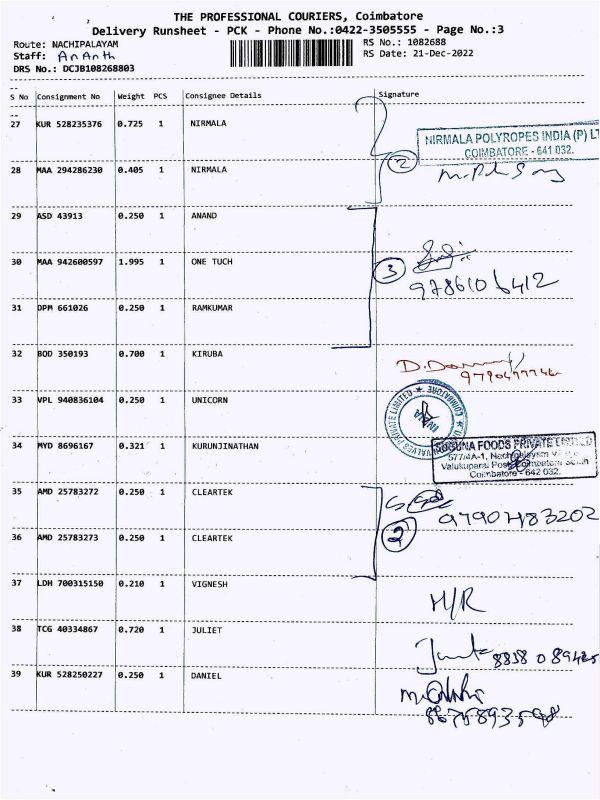 THE PROFESSIONAL COURIERS, Coimbatore
Delivery Runsheet - PCK - Phone No.:0422-3505555 - Page No.:3
Route: NACHIPALAYAM
RS No.: 1082688
Staff: Ananth
RS Date: 21-Dec-2022
DRS No.: DCJB108268803
S No Consignment No Weight PCS Consignee Details Signature
27 KUR 528235376 0.725 1 NIRMALA
NIRMALA POLYROPES INDIA (P) LT
COIMBATORE - 641 032.
2
28 MAA 294286230 0.405 1 NIRMALA
29 ASD 43913 0.250 1 ANAND
30 MAA 942600597 1.995 1 ONE TUCH
3
9786106412
31 DPM 661026 0.250 1 RAMKUMAR
32 BOD 350193 0.700 1 KIRUBA
33 VPL 940836104 0.250 1 UNICORN
PRIVATE LIMITED
COIMBATORE
34 MYD 8696167 0.321 1 KURUNJINATHAN
SUGUNA FOODS PRIVATE LIMITED
577/4A-1, Nachipalayam
Valukuparai Post, Coimbatore South
Coimbatore - 642 032.
35 AMD 25783272 0.250 1 CLEARTEK
9790483202
36 AMD 25783273 0.250 1 CLEARTEK
2
37 LDH 700315150 0.210 1 VIGNESH
H/R
38 TCG 40334867 0.720 1 JULIET
39 KUR 528250227 0.250 1 DANIEL